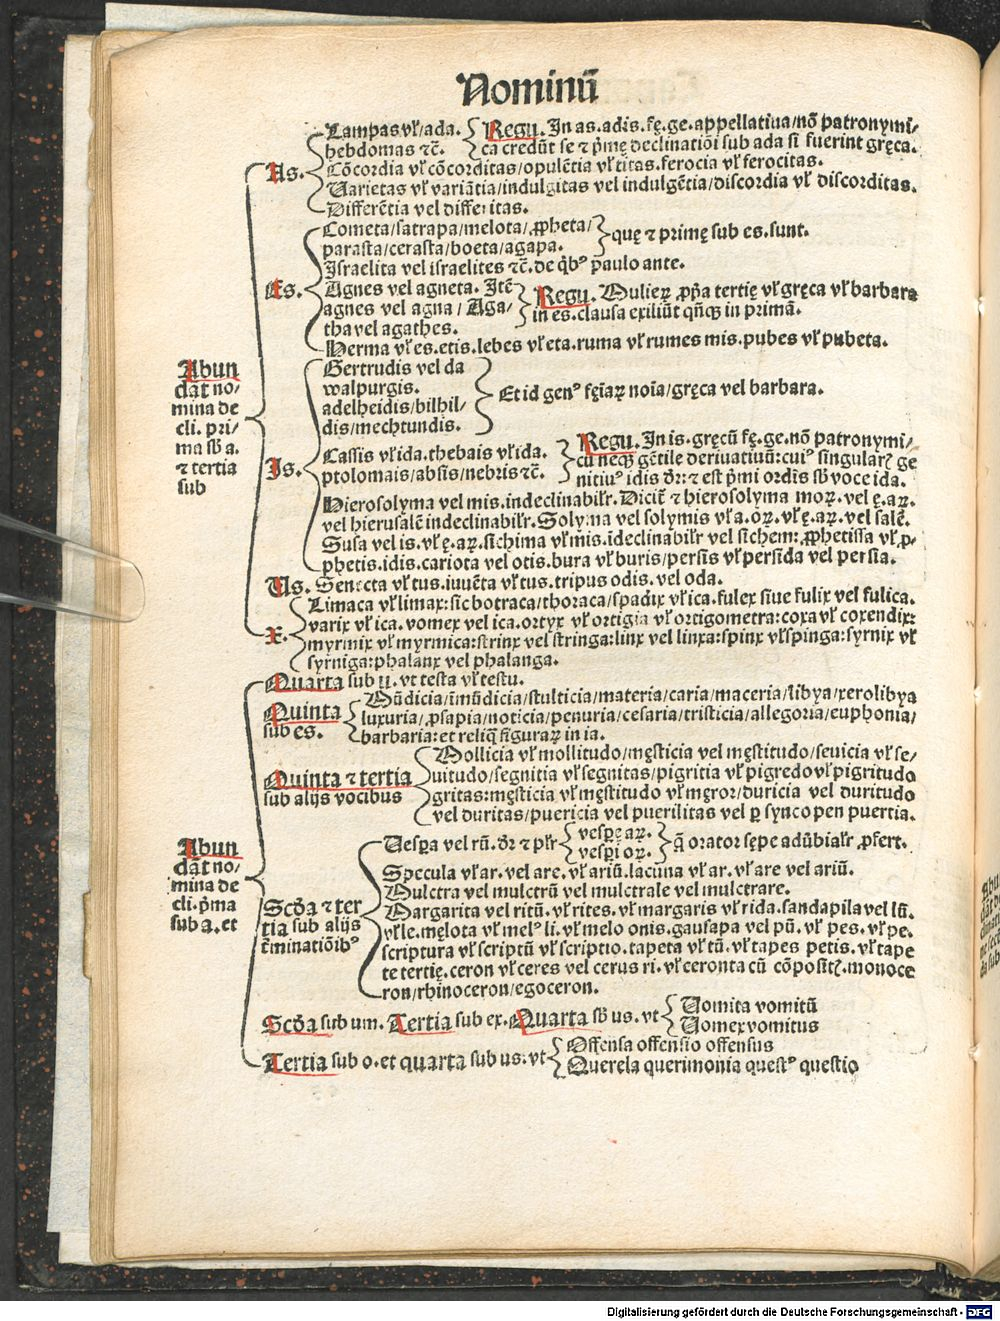 Nominū
Lampas vĺ/ada.
hebdomas ⁊c̄.
Regu. In as. adis. fę. ge. appellatiua/nō patronymi⸗
ca credūt se ⁊ p̄mę declinatiōi sub ada si fuerint gręca.
As.
Cōcordia vĺ cōcorditas/opulētia vĺ titas. ferocia vĺ ferocitas.
Varietas vĺ variātia/indulgitas vel indulgētia/discordia vĺ discorditas.
Differētia vel differitas.
Cometa/satrapa/melota/ꝓpheta/
parasta/cerasta/boeta/agapa.
quę ⁊ primę sub es. sunt.
Israelita vel israelites ⁊c̄. de q̇bꝰ paulo ante.
Es.
Agnes vel agneta. Itē
agnes vel agna/Aga⸗
tha vel agathes.
Regu. Mulieꝝ ꝓpͥa tertię vĺ gręca vĺ barbara
in es. clausa exiliūt qn̄qꝫ in primā.
Herma vĺ es. etis. lebes vĺ eta. ruma vĺ rumes mis. pubes vĺ pubeta.
Abun
dāt no⸗
mina de
cli. pri⸗
ma sb̄ a.
⁊ tertia
sub
Gertrudis vel da
walpurgis.
adelheidis/bilhil⸗
dis/mechtundis.
Et id genꝰ fęiaꝝ noīa/gręca vel barbara.
Is.
Cassis vĺ ida. thebais vĺ ida.
ptolomais/absis/nebris ⁊c̄.
Regu. In is. gręcū fę. ge. nō patronymi⸗
cū neqꝫ gētile deriuatiuū: cuiꝰ singularꝭ ge
nitiuꝰ idis dr̄: ⁊ est p̄mi ordīs sb̄ voce ida.
Hierosolyma vel mis. indeclinabilr̄. Dicit̄ ⁊ hierosolyma moꝝ. vel ę. aꝝ.
vel hierusalē indeclinabilr̄. Solyma vel solymis vĺ a. oꝝ. vĺ ę. aꝝ. vel salē.
Susa vel is. vĺ ę. aꝝ. sichima vĺ mis. ideclinabilr̄ vel sichem: ꝓphetissa vĺ ꝓ⸗
phetis. idis. cariota vel otis. bura vĺ buris/persis vĺ persida vel persia.
Us. Senecta vĺ tus. iuuēta vĺ tus. tripus odis. vel oda.
X.
Limaca vĺ limax: sic botraca/thoraca/spadix vĺ ica. fulex siue fulix vel fulica.
varix vĺ ica. vomex vel ica. ortyx vĺ ortigia vĺ ortigometra: coxa vĺ coxendix:
myrmix vĺ myrmica: strinx vel stringa: linx vel linxa: spinx vĺ spinga: syrnix vĺ
syrniga: phalanx vel phalanga.
Quarta sub u. vt testa vĺ testu.
Quinta
sub es.
Mūdicia/īmūdicia/stulticia/materia/caria/maceria/libya/xerolibya
luxuria/ꝓsapia/noticia/penuria/cesaria/tristicia/allegoria/euphonia/
barbaria: et reliq̄ figuraꝝ in ia.
Quinta ⁊ tertia
sub alijs vocibus
Mollicia vĺ mollitudo/męsticia vel męstitudo/seuicia vĺ se⸗
uitudo/segnitia vĺ segnitas/pigritia vĺ pigredo vĺ pigritudo
gritas: męsticia vĺ męstitudo vĺ męror/duricia vel duritudo
vel duritas/puericia vel puerilitas vel ꝑ syncopen puertia.
Abun
dāt no⸗
mina de
cli. p̄ma
sub a. et
Scd̄a ⁊ ter
tia sub alijs
t̄minatiōibꝰ
Vesꝑa vel rū. dr̄ ⁊ plr̄
vesꝑę aꝝ.
vesꝑi oꝝ.
q̄ orator sępe adūbialr̄ ꝓfert.
Specula vĺ ar. vel are. vĺ ariū. lacuna vĺ ar. vĺ are vel ariū.
Mulctra vel mulctrū vel mulctrale vel mulctrare.
Margarita vel ritū. vĺ rites. vĺ margaris vĺ rida. sandapila vel lū.
vĺ le. męlota vĺ melꝰ li. vĺ melo onis. gausapa vel pū. vĺ pes. vĺ pe.
scriptura vĺ scriptū vĺ scriptio. tapeta vĺ tū. vĺ tapes petis. vĺ tape
te tertię. ceron vĺ ceres vel cerus ri. vĺ ceronta cū cōpositꝭ. monoce
ron/rhinoceron/egoceron.
Scd̄a sub um. Tertia sub ex. Quarta sb̄ us. vt
Vomita vomitū
Vomex vomitus
Tertia sub o. et quarta sub us. vt
Offensa offensio offensus
Querela querimonia questꝰ questio
Digitalisierung gefördert durch die Deutsche Forschungsgemeinschaft - DFG